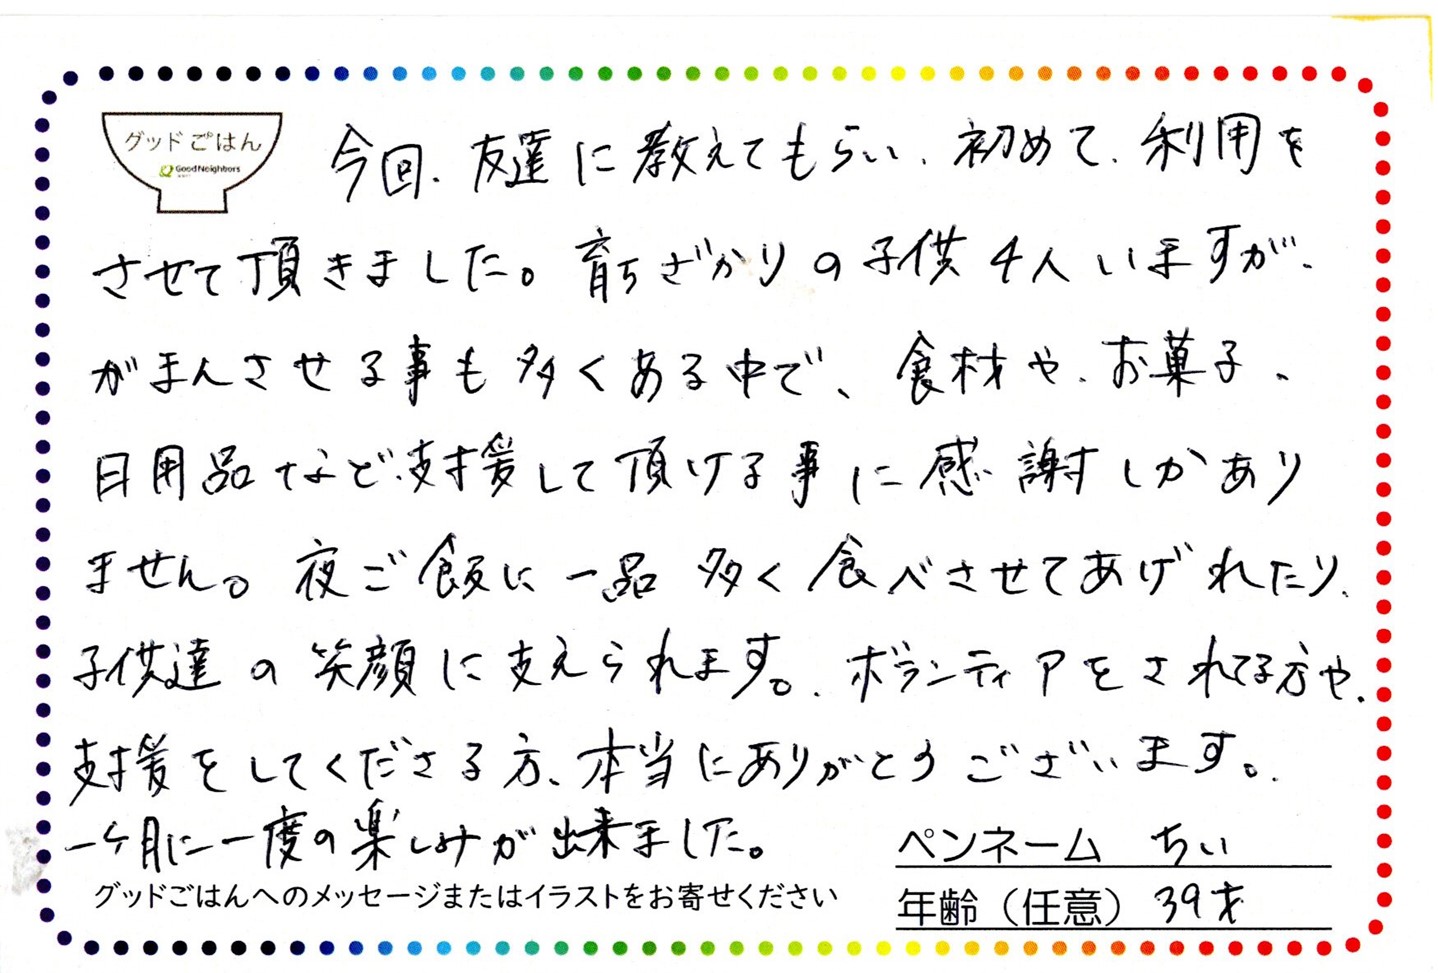 グッドごはん
GoodNeighbors
今回、友達に教えてもらい、初めて、利用を
させて頂きました。育ちざかりの子供4人いますが、
がまんさせる事も多くある中で、食材や、お菓子、
日用品など、支援して頂ける事に感謝しかあり
ません。夜ご飯に一品多く食べさせてあげれたり、
子供達の笑顔に支えられます。ボランティアをされてる方や、
支援をしてくださる方、本当にありがとうございます。
一ヶ月に一度の楽しみが出来ました。
グッドごはんへのメッセージまたはイラストをお寄せください
ペンネーム ちい
年齢（任意） 39才